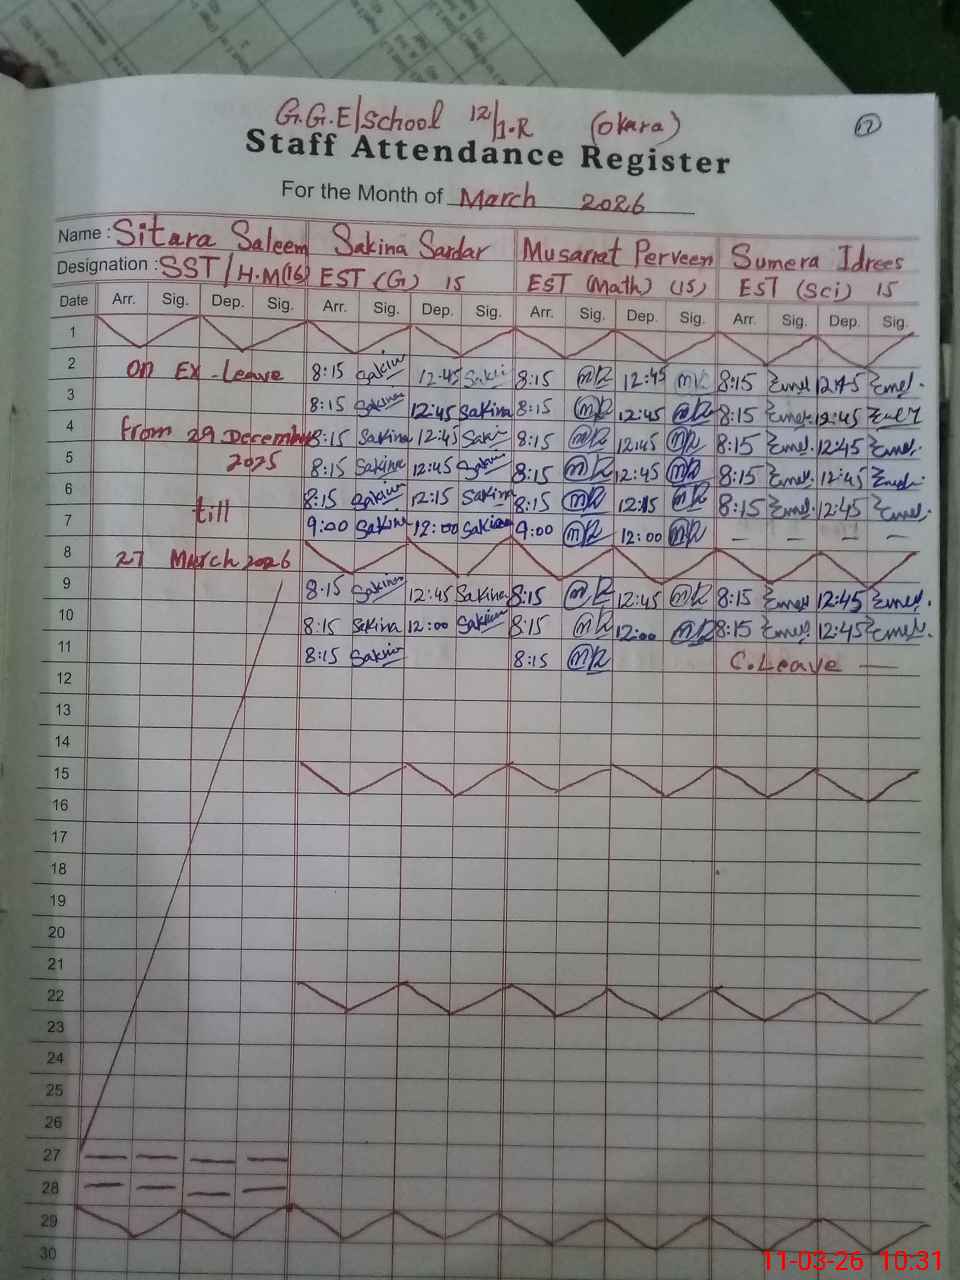 G.G.E/School 12/1.R (Okara)
17
Staff Attendance Register
For the Month of March 2026
Name : Sitara Saleem Sakina Sardar Musarat Perveen Sumera Idrees
Designation : SST/H.M(16) EST (G) 15 EST (Math) (15) EST (Sci) 15
Date Arr. Sig. Dep. Sig. Arr. Sig. Dep. Sig. Arr. Sig. Dep. Sig. Arr. Sig. Dep. Sig.
1
2 On Ex-Leave 8:15 Sakina 12:45 8:15 MR 12:45 8:15 12:45
3 8:15 Sakina 12:45 Sakina 8:15 MR 12:45 MR 8:15 12:45
4 from 29 December 8:15 Sakina 12:45 8:15 MR 12:45 MR 8:15 12:45
5 2025 8:15 Sakina 12:45 Sakina 8:15 MR 12:45 MR 8:15 12:45
6 till 8:15 Sakina 12:15 Sakina 8:15 MR 12:15 MR 8:15 12:45
7 9:00 Sakina 12:00 Sakina 9:00 MR 12:00 MR — — — —
8 27 March 2026
9 8:15 Sakina 12:45 Sakina 8:15 MR 12:45 MR 8:15 12:45
10 8:15 Sakina 12:00 Sakina 8:15 MR 12:00 MR 8:15 12:45
11 8:15 Sakina 8:15 MR C.Leave —
12
13
14
15
16
17
18
19
20
21
22
23
24
25
26
27
28
29
30
11-03-26 10:31